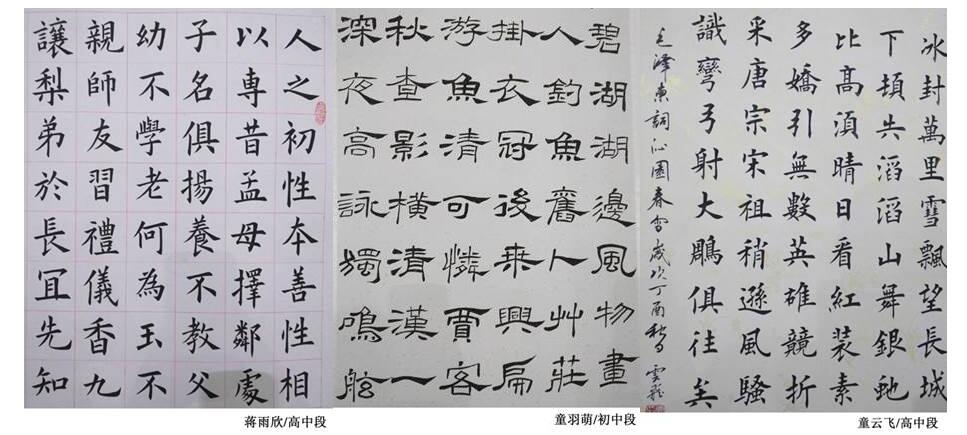 人之初性本善性相
以專昔孟母擇鄰處
子名俱揚養不教父
幼不學老何為玉不
親師友習禮儀香九
讓梨弟於長宜先知
蒋雨欣/高中段
碧湖湖邊風物畫
人釣魚舊人艸莊
掛衣冠後乗興扁
游魚清可憐賈客
秋查影橫清漢一
深夜高詠獨鳴舷
童羽萌/初中段
冰封萬里雪飄望長城
下頓失滔滔山舞銀虵
比高須晴日看紅装素
多嬌引無數英雄競折
采唐宗宋祖稍遜風騷
識彎弓射大鵰俱往矣
毛澤東詞沁園春雪歲次丁酉秋 雲飛
童云飞/高中段